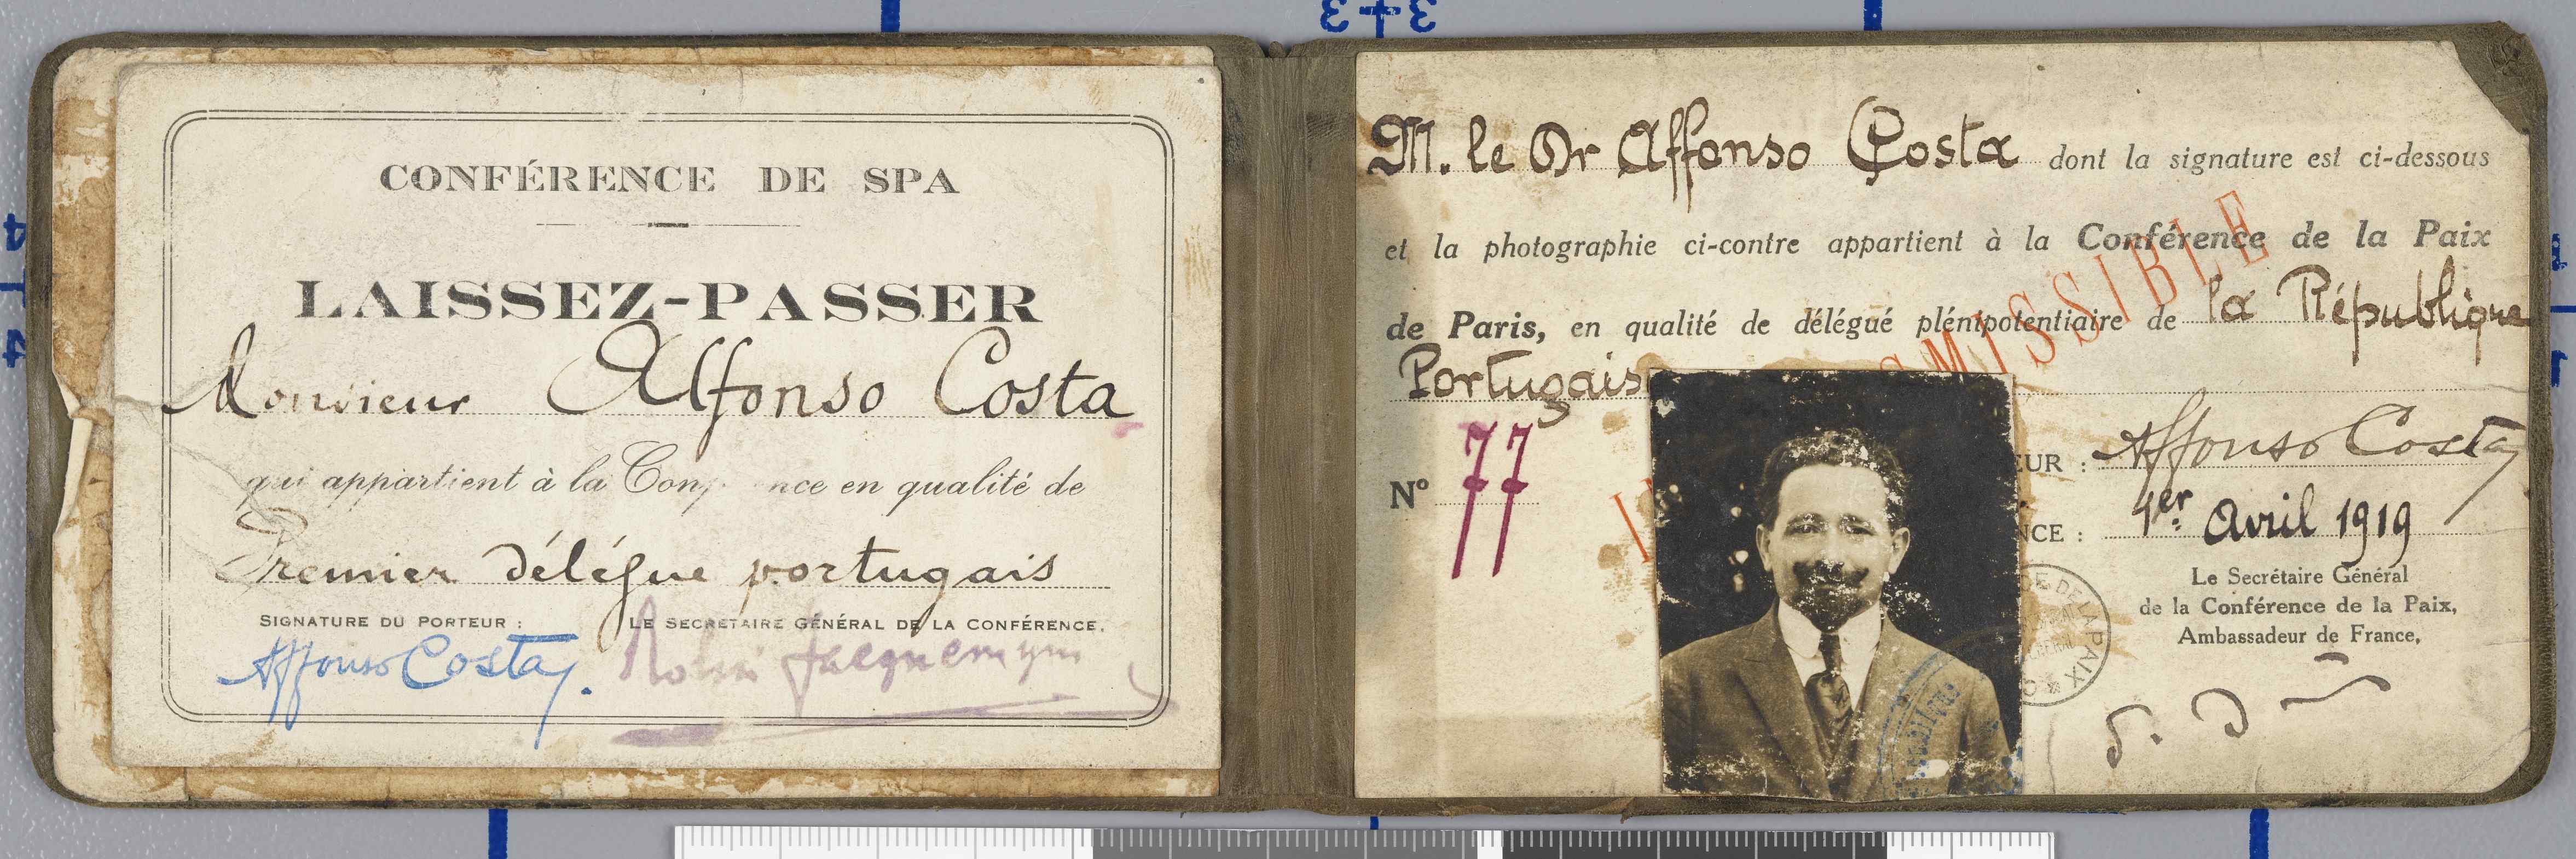 CONFÉRENCE DE SPA
LAISSEZ-PASSER
Monsieur Alfonso Costa
qui appartient à la Conf nce en qualité de
Premier délégue portugais
SIGNATURE DU PORTEUR :
LE SECRÉTAIRE GÉNÉRAL DE LA CONFÉRENCE,
Affonso Costa
M. le Dr Affonso Costa dont la signature est ci-dessous
et la photographie ci-contre appartient à la Conférence de la Paix
de Paris, en qualité de délégué plénipotentiaire de la République
Portugais
SMISSIBLE
Nº 77
EUR : Affonso Costa
NCE : 1er Avril 1919
Le Secrétaire Général
de la Conférence de la Paix,
Ambassadeur de France,
DE LA PAIX
3 3
4 4